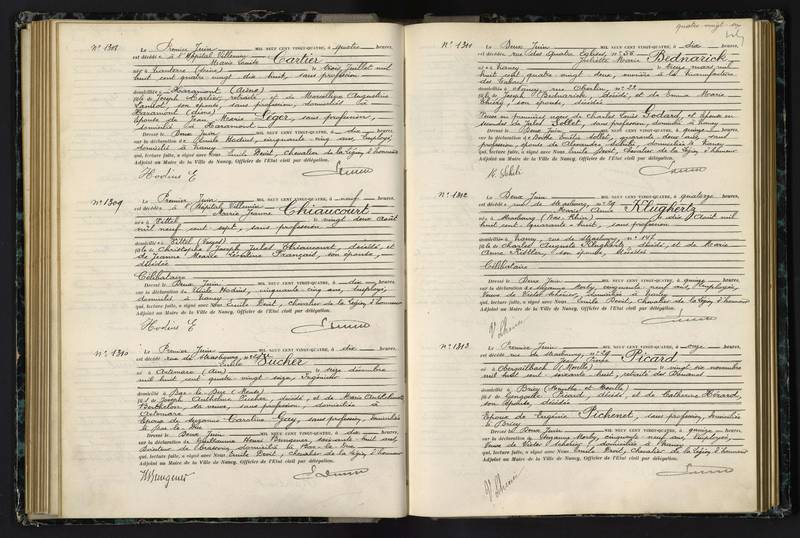 N° 1308
Le Premier Juin MIL NEUF CENT VINGT-QUATRE, à quatre heures,
est décédée à l'Hôpital Villemin
Marie Emile Cartier
née à (Aisne) le trois Juillet mil
huit cent quatre vingt dix huit, sans profession
domiciliée à Haramont (Aisne)
fille de Joseph Cartier, retraité et de Augustine
son épouse, sans profession, domiciliés à
Haramont (Aisne)
Epouse de Jean Marie Léger, sans profession,
domicilié à Haramont
Devant le Deux Juin MIL NEUF CENT VINGT-QUATRE, à dix heures,
sur la déclaration de Emile Hodius, cinquante cinq ans, employé,
domicilié à Nancy
qui, lecture faite, a signé avec Nous Emile Devit, Chevalier de la Légion d'honneur
Adjoint au Maire de la Ville de Nancy, Officier de l'Etat civil par délégation.
Hodius E
N° 1309
Le Premier Juin MIL NEUF CENT VINGT-QUATRE, à neuf heures,
est décédée à l'Hôpital Villemin
Marie Jeanne Chiaucourt
née à Vittel le vingt deux Août
mil neuf cent sept, sans profession
domiciliée à Vittel (Vosges)
fille de Christophe Joseph Jules Chiaucourt, décédé, et
de Jeanne Marie Français, son épouse,
décédée
Célibataire
Devant le Deux Juin MIL NEUF CENT VINGT-QUATRE, à dix heures,
sur la déclaration de Emile Hodius, cinquante-cinq ans, employé,
domicilié à Nancy
qui, lecture faite, a signé avec Nous Emile Devit, Chevalier de la Légion d'honneur
Adjoint au Maire de la Ville de Nancy, Officier de l'Etat civil par délégation.
Hodius E
N° 1310
Le Premier Juin MIL NEUF CENT VINGT-QUATRE, à dix heures,
est décédé rue de Strasbourg
Emile Pucher
né à Artemare (Ain) le seize décembre
mil huit cent quatre vingt seize, Ingénieur
domicilié à Bar-le-Duc (Meuse)
fils de Joseph Anthelme Pucher, décédé, et de Marie
Berthelon, sa veuve, sans profession, domiciliée à
Artemare
Epoux de Suzanne Caroline Guy, sans profession, domiciliée
à Bar le Duc
Devant le Deux Juin MIL NEUF CENT VINGT-QUATRE, à dix heures,
sur la déclaration de Guillaume Henri Bungener, soixante huit ans,
domicilié à Bar-le-Duc
qui, lecture faite, a signé avec Nous Emile Devit, Chevalier de la Légion d'honneur
Adjoint au Maire de la Ville de Nancy, Officier de l'Etat civil par délégation.
HBungener
quatre vingt
N° 1311
Le Deux Juin MIL NEUF CENT VINGT-QUATRE, à dix heures,
est décédée rue des Quatre Eglises, n° 58
Juliette Marie Bednarick
née à Nancy le treize mars mil
huit cent quatre vingt deux, ouvrière à la Manufacture
des Tabacs
domiciliée à Nancy, rue n° 22
fille de Joseph Bednarick, décédé, et de Anna Marie
son épouse, décédée
Veuve en premières noces de Charles Louis Godard, et épouse en
secondes de Jules Lollot, sans profession, domicilié à Nancy
Devant le Deux Juin MIL NEUF CENT VINGT-QUATRE, à quinze heures,
sur la déclaration de Emilie Lollot, quarante deux ans, sans
profession, épouse de Alexandre domiciliée à Nancy
qui, lecture faite, a signé avec Nous Emile Devit, Chevalier de la Légion d'honneur
Adjoint au Maire de la Ville de Nancy, Officier de l'Etat civil par délégation.
N° 1312
Le Deux Juin MIL NEUF CENT VINGT-QUATRE, à quatorze heures,
est décédée rue de Strasbourg, n°
Marie Anne Klughertz
née à Strasbourg (Bas-Rhin) le dix Août mil
huit cent quarante-huit, sans profession
domiciliée à Nancy, rue de Strasbourg, n° 147
fille de Charles Auguste Klughertz, décédé, et de Marie
Anne son épouse, décédée
Célibataire
Devant le Deux Juin MIL NEUF CENT VINGT-QUATRE, à quinze heures,
sur la déclaration de Suzanne Morby, cinquante-neuf ans, Employée,
Veuve de Victor domiciliée à Nancy
qui, lecture faite, a signé avec Nous Emile Devit, Chevalier de la Légion d'honneur
Adjoint au Maire de la Ville de Nancy, Officier de l'Etat civil par délégation.
N° 1313
Le Premier Juin MIL NEUF CENT VINGT-QUATRE, à onze heures,
est décédé rue de Strasbourg, n°
Picard
né à Obergailbach (Moselle) le vingt six novembre
mil huit cent soixante-huit, retraité des Douanes
domicilié à Briey (Meurthe et Moselle)
fils de Gengoulfe Picard, décédé, et de Catherine Hérard,
son épouse, décédée
Epoux de Eugénie Pichenet, sans profession, domiciliée
à Briey
Devant le Deux Juin MIL NEUF CENT VINGT-QUATRE, à quinze heures,
sur la déclaration de Suzanne Morby, cinquante neuf ans, Employée,
Veuve de Victor domiciliée à Nancy
qui, lecture faite, a signé avec Nous Emile Devit, Chevalier de la Légion d'honneur
Adjoint au Maire de la Ville de Nancy, Officier de l'Etat civil par délégation.